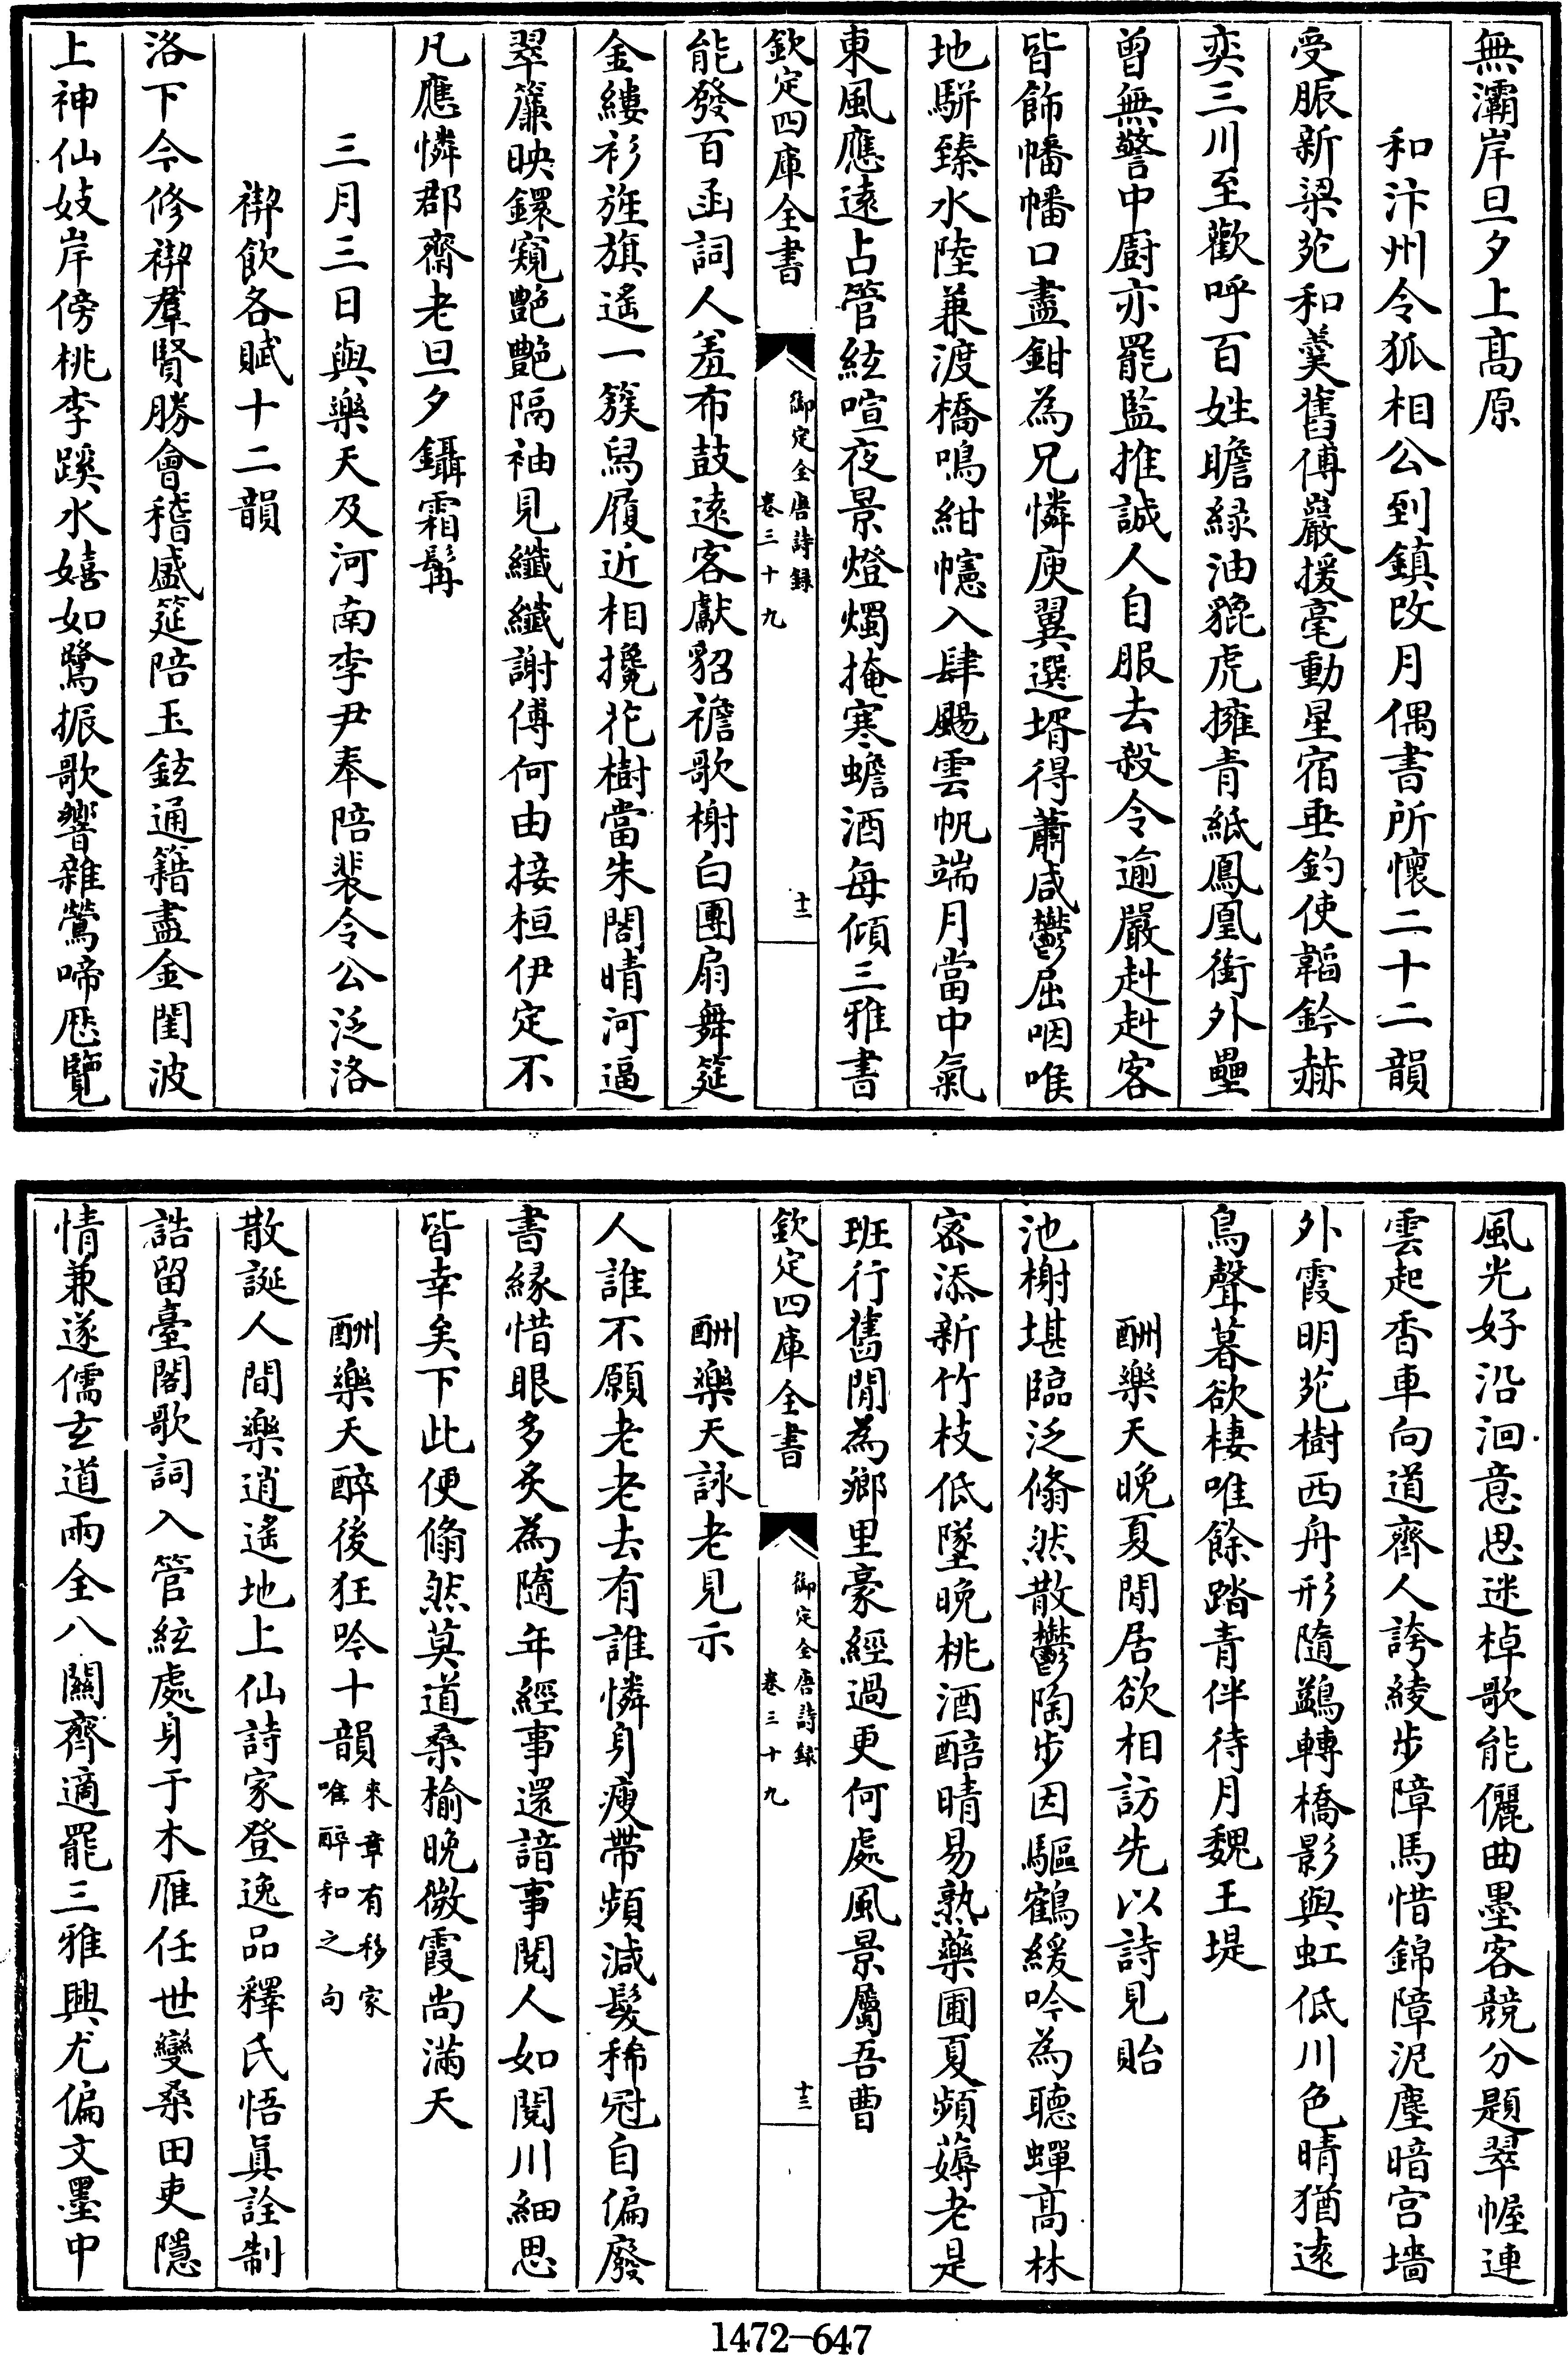 無灞岸旦夕上髙原
和汴州令狐相公到鎮改月偶書所懷二十二韻
受脤新梁苑和羮舊傅巖援毫動星宿垂釣使韜鈐赫
奕三川至歡呼百姓瞻緑油貔虎擁青紙鳳凰銜外壘
曾無警中厨亦罷監推誠人自服去殺令逾嚴赳赳客
皆飾幡幡口盡鉗為兄憐庾翼選壻得蕭咸鬱屈咽喉
地駢臻水陸兼渡橋鳴紺幰入肆颺雲帆端月當中氣
東風應逺占管絃喧夜景燈燭掩寒蟾酒每傾三雅書
欽定四庫全書
御定全唐詩録
卷三十九
十二
能發百函詞人羞布鼓逺客獻貂襜歌榭白團扇舞筵
金縷衫旌旗遙一簇舄履近相攙花樹當朱閣晴河逼
翠簾映鐶窺艶艶隔袖見纖纖謝傅何由接桓伊定不
凡應憐郡齋老旦夕鑷霜髯
三月三日與樂天及河南李尹奉陪裴令公泛洛
禊飲各賦十二韻
洛下今修禊羣賢勝會稽盛筵陪玉鉉通籍盡金閨波
上神仙妓岸傍桃李蹊水嬉如鷺振歌響雜鶯啼厯覽
風光好沿洄意思迷棹歌能儷曲墨客競分題翠幄連
雲起香車向道齊人誇綾步障馬惜錦障泥塵暗宫墻
外霞明苑樹西舟形隨鷁轉橋影與虹低川色晴猶逺
鳥聲暮欲棲唯餘踏青伴待月魏王堤
酬樂天晚夏閒居欲相訪先以詩見貽
池榭堪臨泛翛然散鬱陶步因驅鶴緩吟為聽蟬髙林
宻添新竹枝低墜晚桃酒醅晴易熟藥圃夏頻薅老是
班行舊閒為鄉里豪經過更何處風景屬吾曹
欽定四庫全書
御定全唐詩録
卷三十九
十三
酬樂天詠老見示
人誰不願老老去有誰憐身瘦帶頻減髮稀冠自偏廢
書緣惜眼多炙為隨年經事還諳事閱人如閱川細思
皆幸矣下此便翛然莫道桑榆晚微霞尚滿天
酬樂天醉後狂吟十韻來章有移家唯醉和之句
散誕人間樂逍遙地上仙詩家登逸品釋氏悟眞詮制
誥留臺閣歌詞入管絃處身于木雁任世變桑田吏隱
情兼遂儒玄道兩全八關齊適罷三雅興尤偏文墨中
1472-647